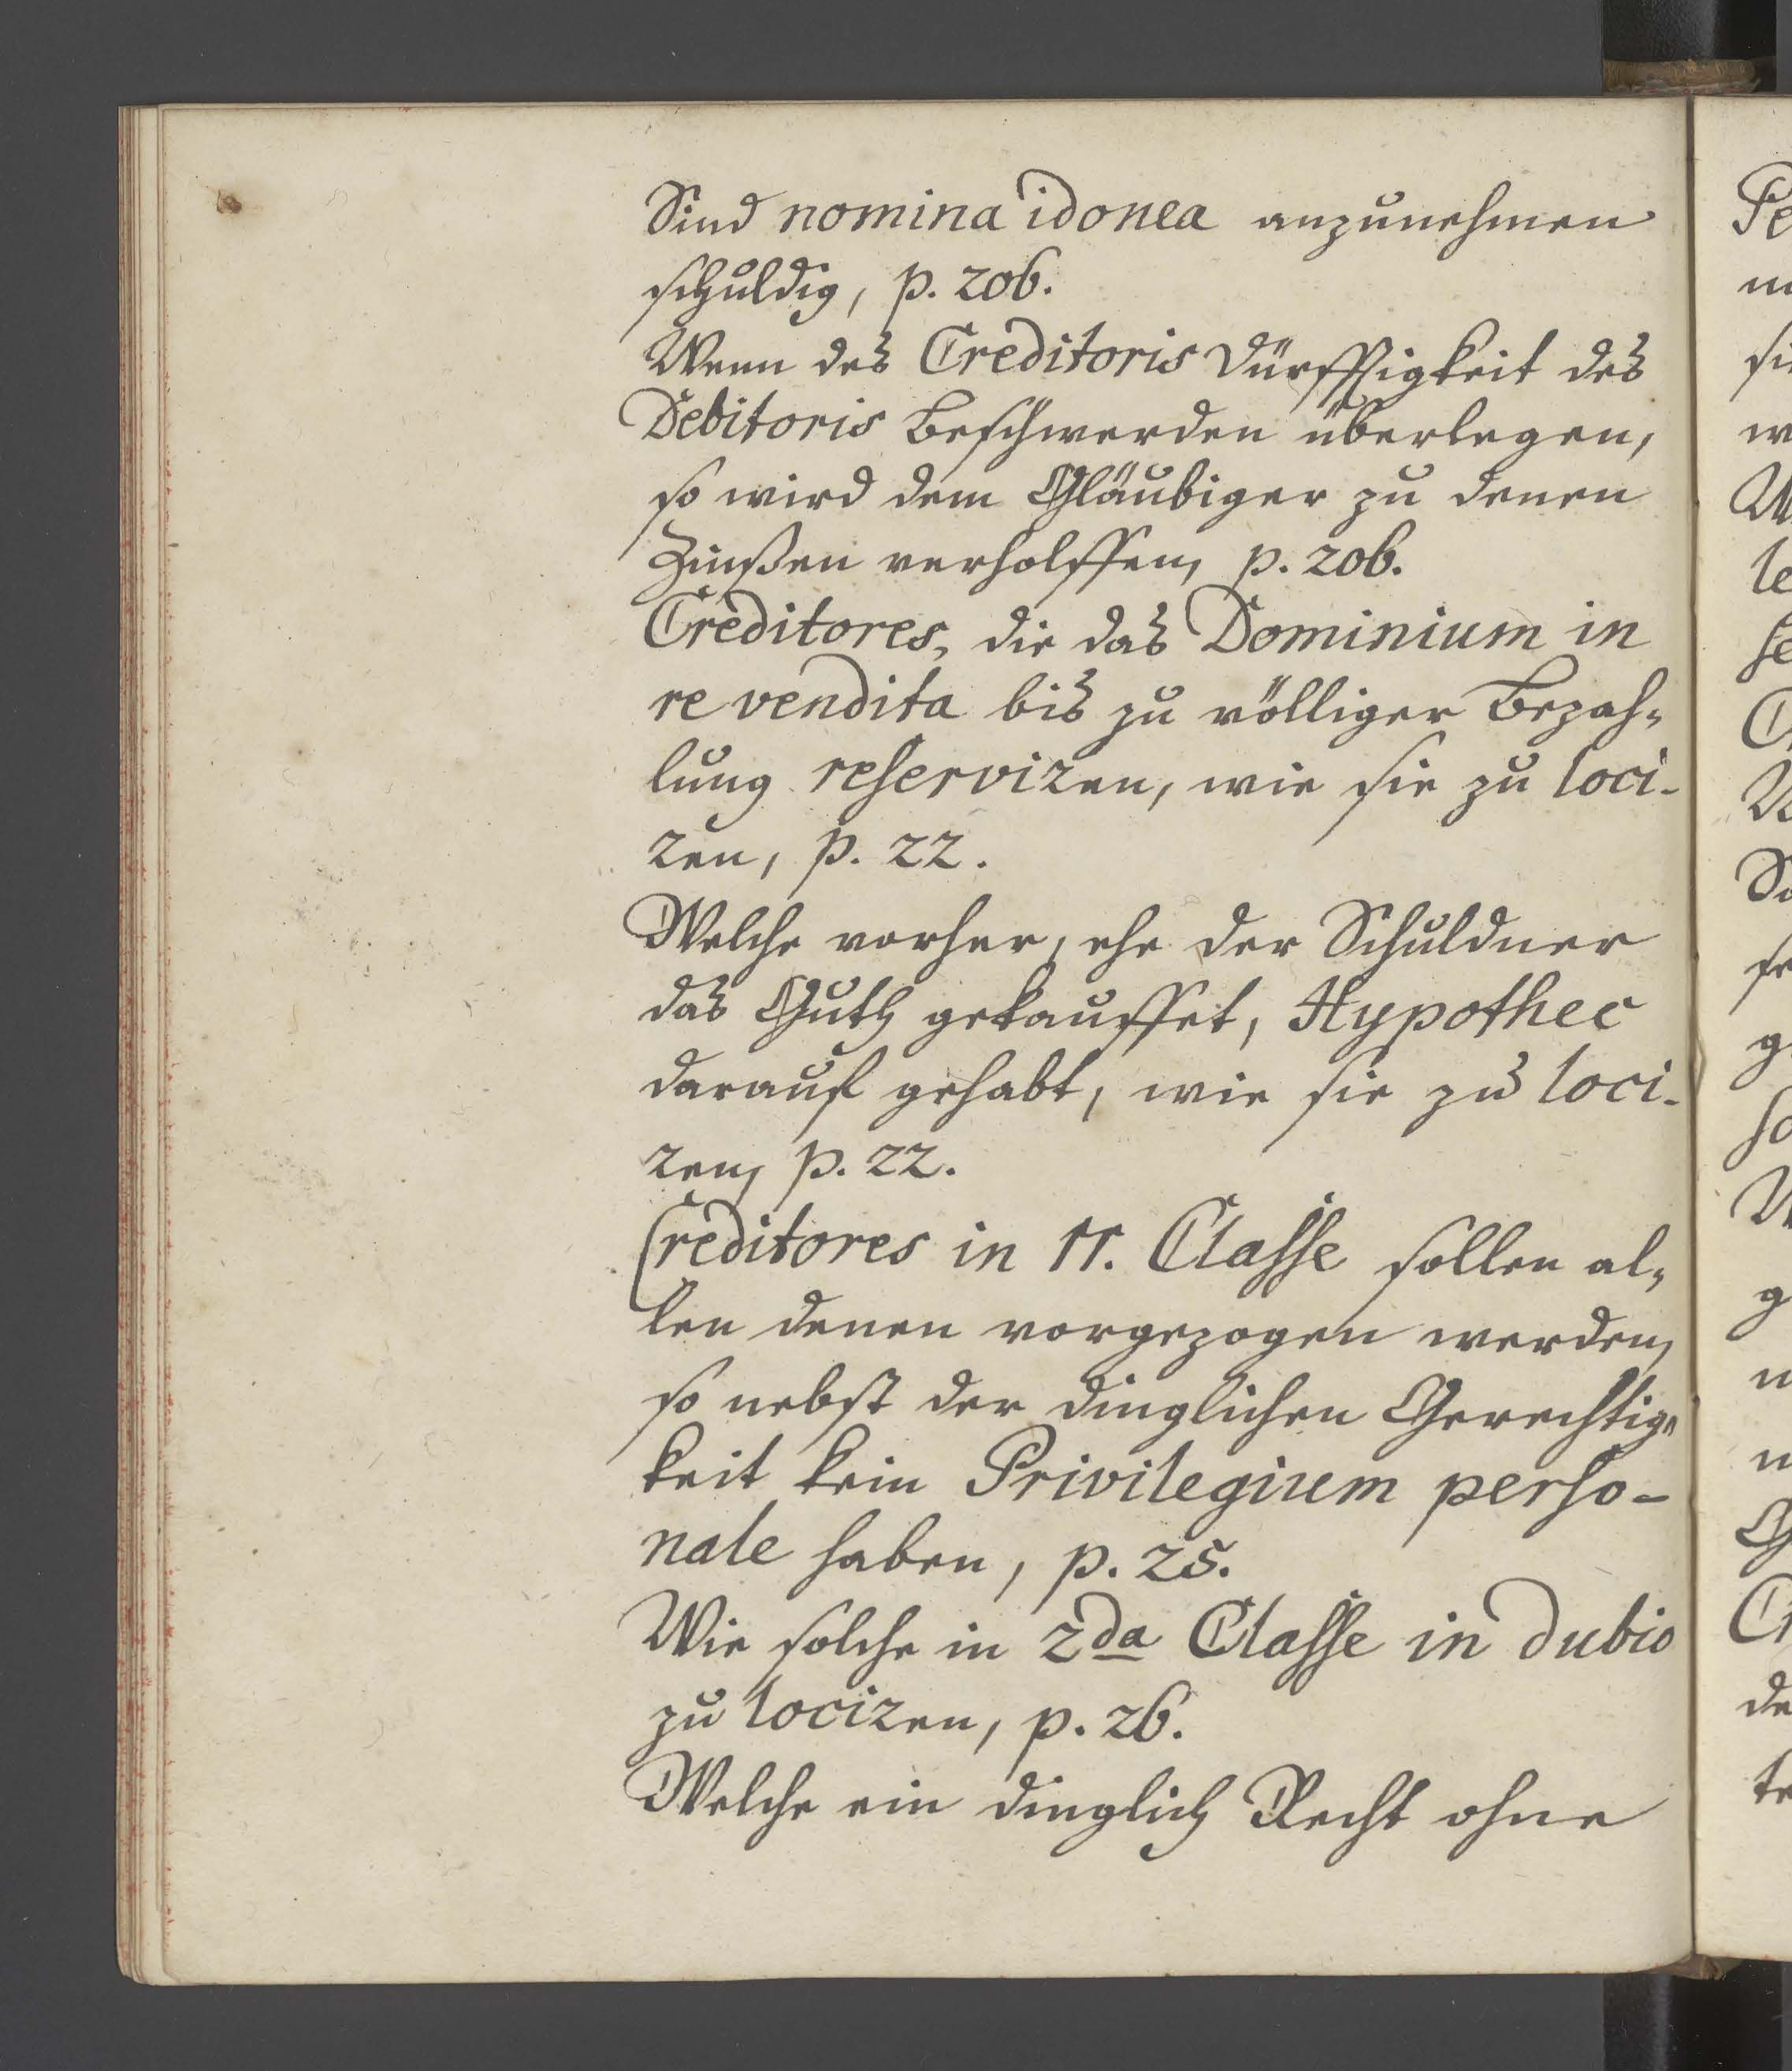 Sind nomina idonea anzunehmen
schuldig, p. 206.
Wenn des Creditoris Dürfftigkeit des
Debitoris Beschwerden überlegen,
so wird dem Gläubiger zu denen
Zinßen verholffen, p. 206.
Creditores, die das Dominium in
re vendita bis zu völliger Bezah⸗
lung reserviren, wie sie zu loci-
ren, p. 22.
Welche vorher, ehe der Schuldner
das Guth gekauffet, Hypothec
darauf gehabt, wie sie zu loci-
ren, p. 22.
Creditores in II. Classe sollen al⸗
len denen vorgezogen werden,
so nebst der dinglichen Gerechtig⸗
keit kein Privilegium perso-
nale haben, p. 25.
Wie solche in 2da Classe in dubio
zu lociren, p. 26.
Welche ein dinglich Recht ohne